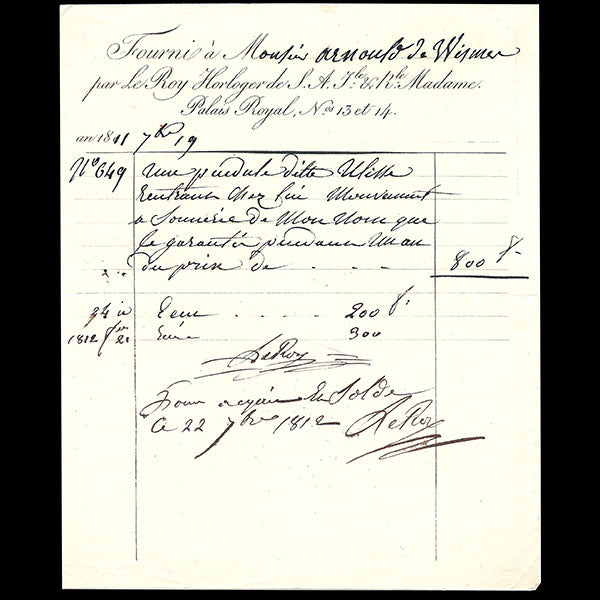 Fourni à Monsieur arnould de Wismes
par Le Roy Horloger de S. A. I.le & R.le Madame.
Palais Royal, Nos 13 et 14.
an 1811 7bre 19
No 649 une pendule ditte Ulisse
rentrant chez lui Mouvement
a Sonnerie de Mon Nom que
je garantie pendant un an
du prix de . . . . 800 f.
24 Reçu . . . . . 200 f.
1812 21 300
LeRoy
Pour acquit En Solde
Ce 22 7bre 1812 LeRoy